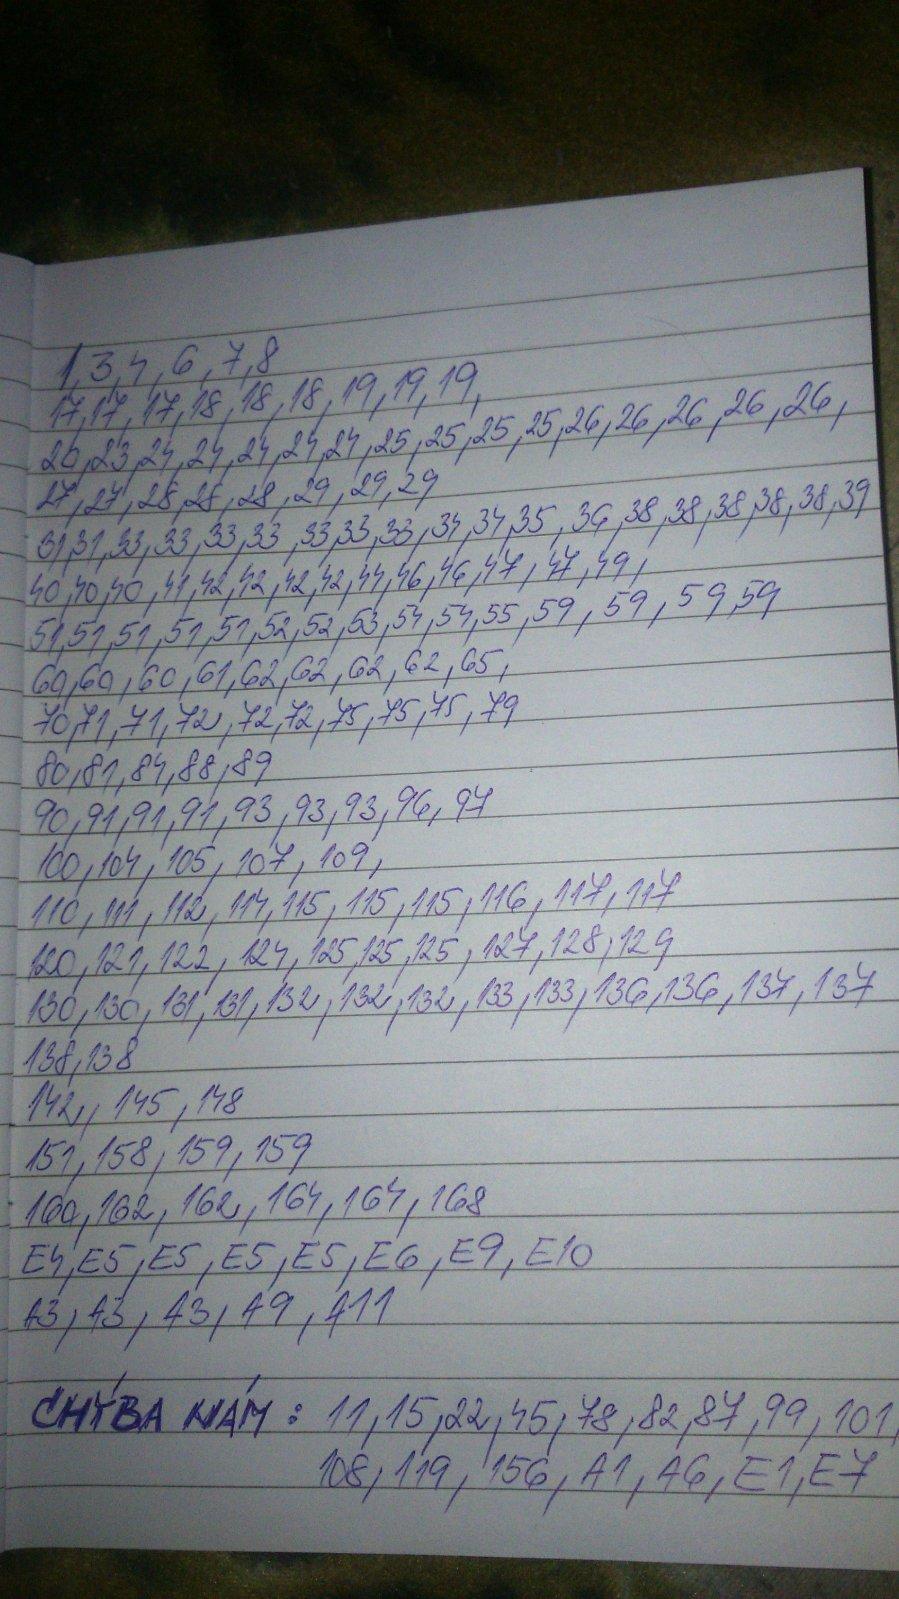 1,3,4,6,7,8
17,17,17,18,18,18,19,19,19,
20,23,24,24,24,24,24,25,25,25,25,26,26,26,26,26,
27,27,28,28,28,29,29,29
31,31,33,33,33,33,33,33,33,34,34,35,36,38,38,38,38,38,39
40,40,40,41,42,42,42,42,44,46,46,47,47,49,
51,51,51,51,51,52,52,53,54,54,55,59,59,59,59
60,60,60,61,62,62,62,62,65,
70,71,71,72,72,72,75,75,75,79
80,81,84,88,89
90,91,91,91,93,93,93,96,97
100,104,105,107,109,
110,111,112,114,115,115,115,116,117,117
120,121,122,124,125,125,125,127,128,129
130,130,131,131,132,132,132,133,133,136,136,137,137
138,138
142,,145,148
151,158,159,159
160,162,162,164,164,168
E4,E5,E5,E5,E5,E6,E9,E10
A3,A3,A3,A9,A11
CHÝBA NÁM: 11,15,22,45,78,82,87,99,101,
108,119,156,A1,A6,E1,E7